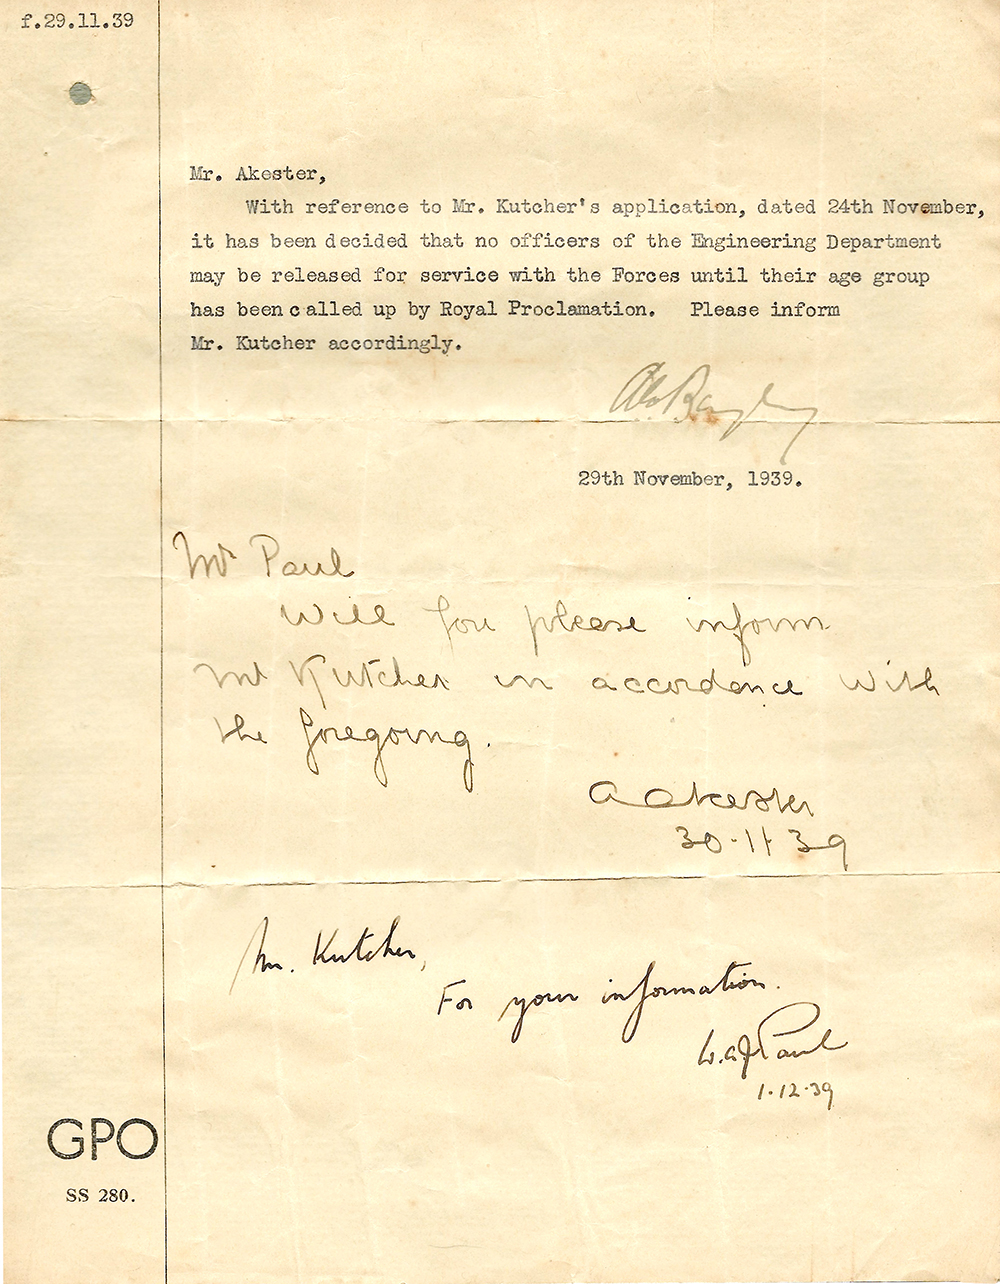 f.29.11.39
Mr. Akester,
With reference to Mr. Kutcher's application, dated 24th November,
it has been decided that no officers of the Engineering Department
may be released for service with the Forces until their age group
has been called up by Royal Proclamation. Please inform
Mr. Kutcher accordingly.
29th November, 1939.
Mr Paul
Will you please inform
Mr Kutcher in accordence with
the foregoing.
A Akester
30.11.39
Mr. Kutcher,
For your information.
W.A.J. Paul
1.12.39
GPO
SS 280.